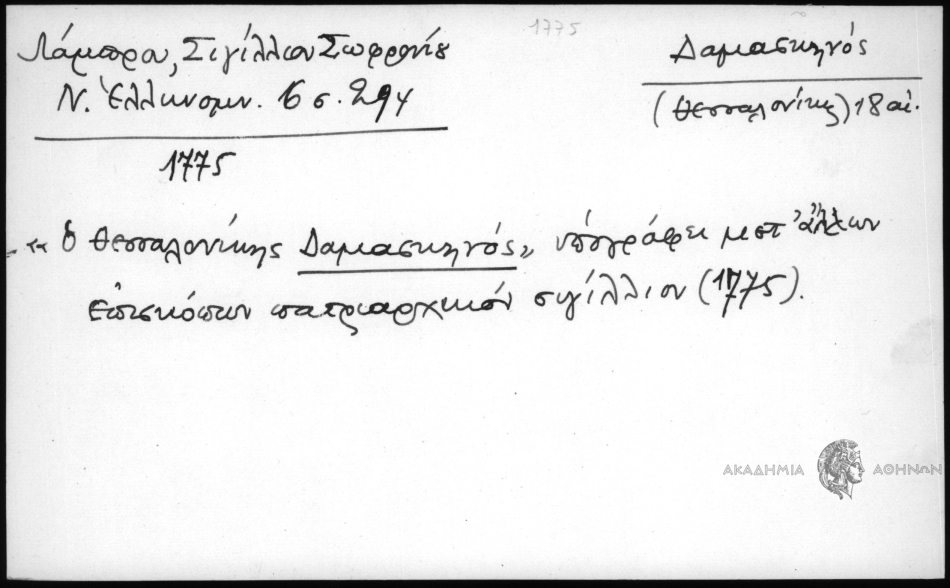 1775
Λάμπρου, Σιγίλλιον Σωφρονίου
Ν. Ἑλληνομν. 16 σ. 294
1775
Δαμασκηνός
(Θεσσαλονίκης) 18 αἰ.
«ὁ Θεσσαλονίκης Δαμασκηνός», ὑπογράφει μετ' ἄλλων
ἐπισκόπων πατριαρχικόν σιγίλλιον (1775).
ΑΚΑΔΗΜΙΑ ΑΘΗΝΩΝ